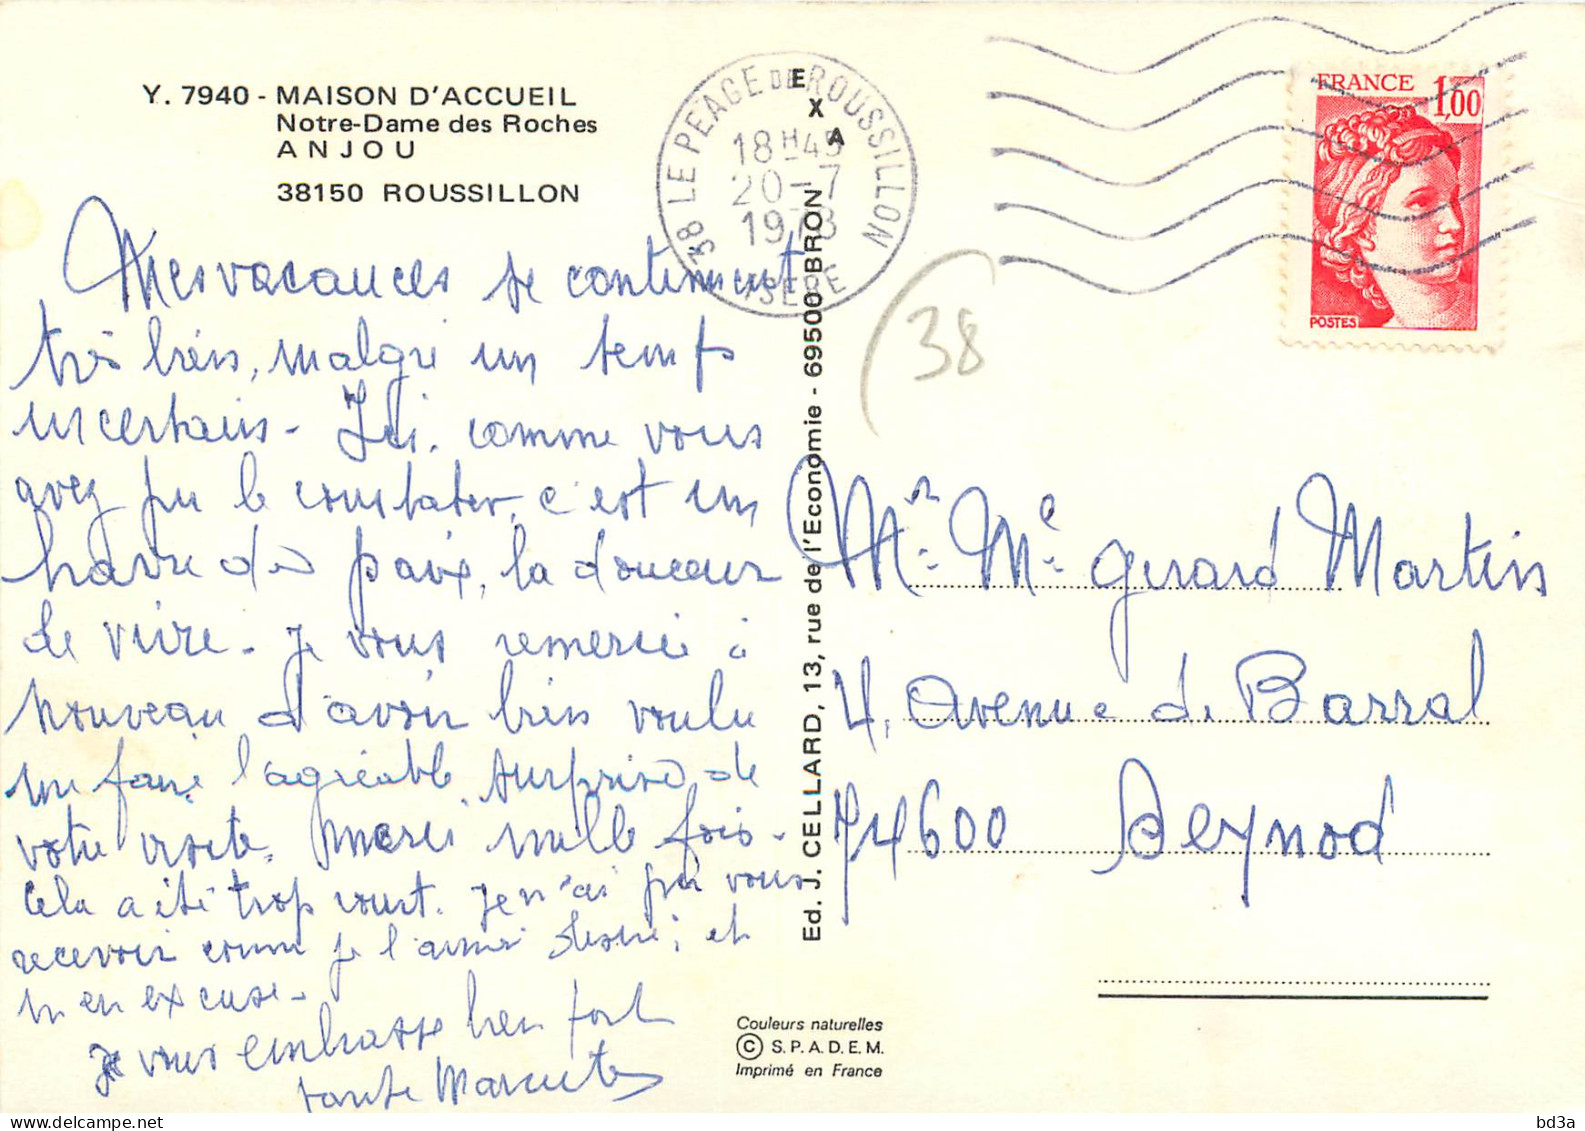 Y. 7940 - MAISON D'ACCUEIL
Notre-Dame des Roches
ANJOU
38150 ROUSSILLON
Mes vacances se continuent
très bien, malgré un temps
incertain - Ici, comme vous
avez pu le constater, c'est un
havre de paix, la douceur
de vivre - Je vous remercie à
nouveau d'avoir bien voulu
me faire l'agréable surprise de
votre visite. Merci mille fois -
Cela a été trop court. Je n'ai pu vous
recevoir comme je l'aurais désiré; et
m'en excuse -
Je vous embrasse bien fort
tante
38 LE PEAGE DE ROUSSILLON
18H45
20-7
1978
ISERE
EXA
Ed. J. CELLARD, 13, rue de l'Economie - 69500 BRON
(38
FRANCE 1,00
POSTES
Mr. Me Gerard Martin
4, Avenue de Barral
74600 Seynod
Couleurs naturelles
© S.P.A.D.E.M.
Imprimé en France
bd3a